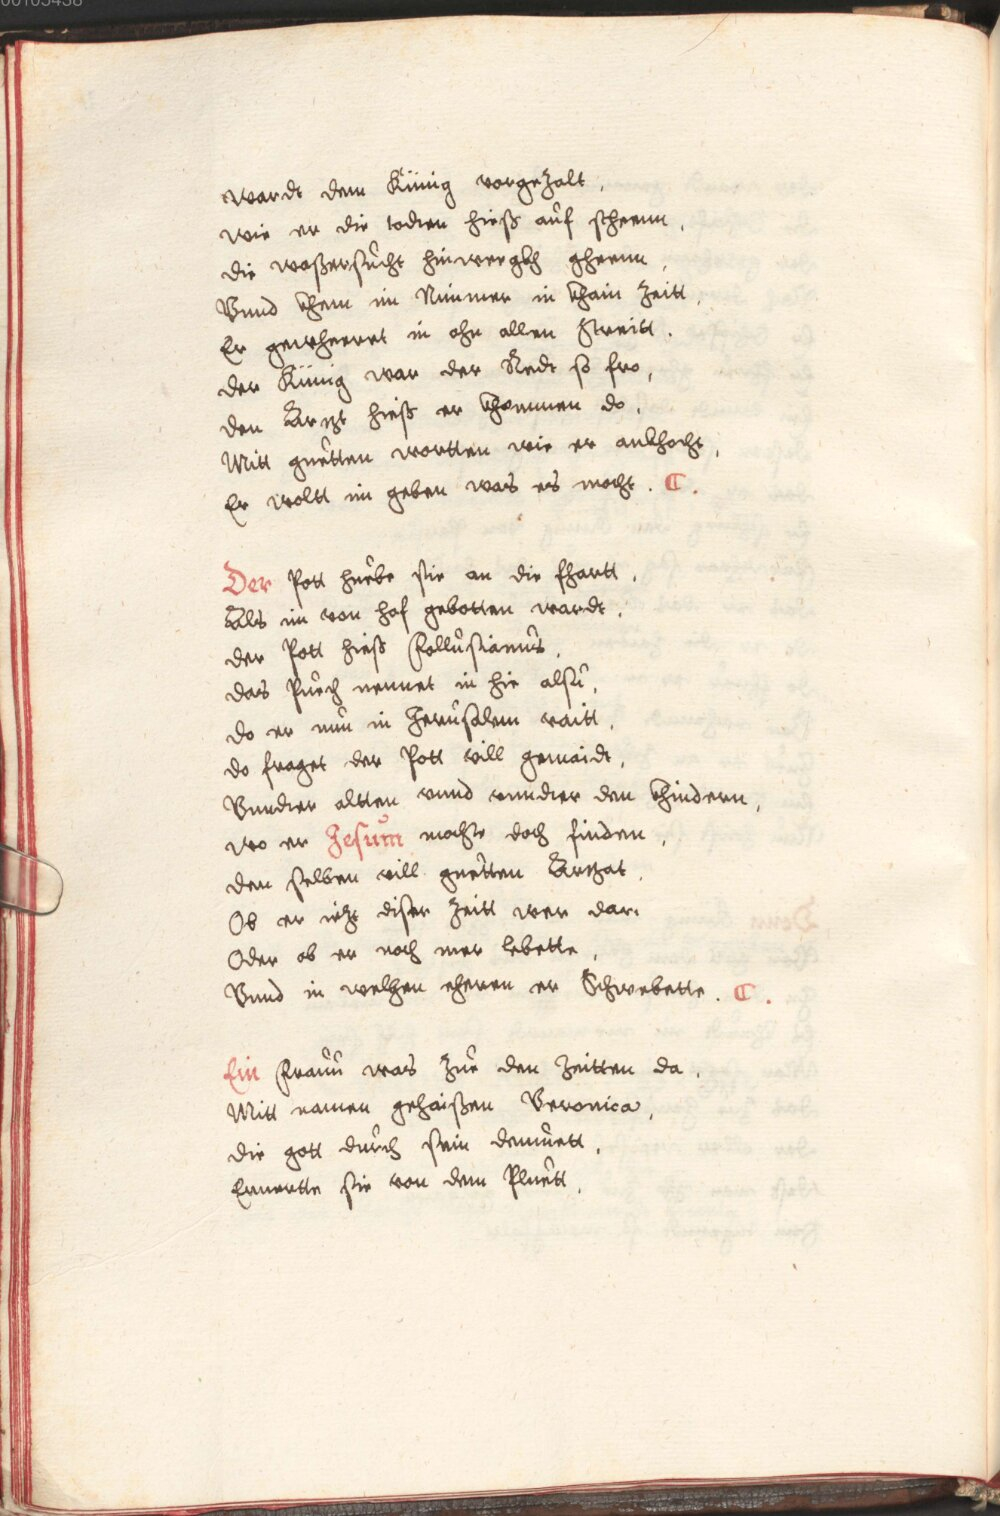 00105438
wardt dem Künig vorgezalt,
wie er die todten hieß auf stheenn,
die waßersucht hinweegkh gheenn,
Vnnd khem im Nimmer in khain Zeitt,
Er geweherret in ohn allen Streitt.
der Künig war der Redt so fro,
den Arzt hieß er khommen do,
Mitt guetten wortten wie er ankhocht,
Er wolt im geben was es mocht. C.
Der Pott huebe sie an die fhartt,
Als im von hof gebotten wardt,
der Pott hieß Follusianus,
das Puech nennet in hie alsu,
do er nun in Jerusalem raitt,
do fraget der Pott vill gemaidt,
Vnndter altten vnnd vnndter den khindern,
wo er Jesum mochte doch finden,
den selben vill guetten Arzat,
Ob er ietzt diser Zeitt wer dar,
Oder ob er noch mer lebette,
Vnnd in welhen eheren er Schwebette. C.
Ein Frauu was Zue den Zeitten da,
Mitt namen gehaißen Veronica,
die gott durch sein demuett,
Ernertte sie von dem Pluett,